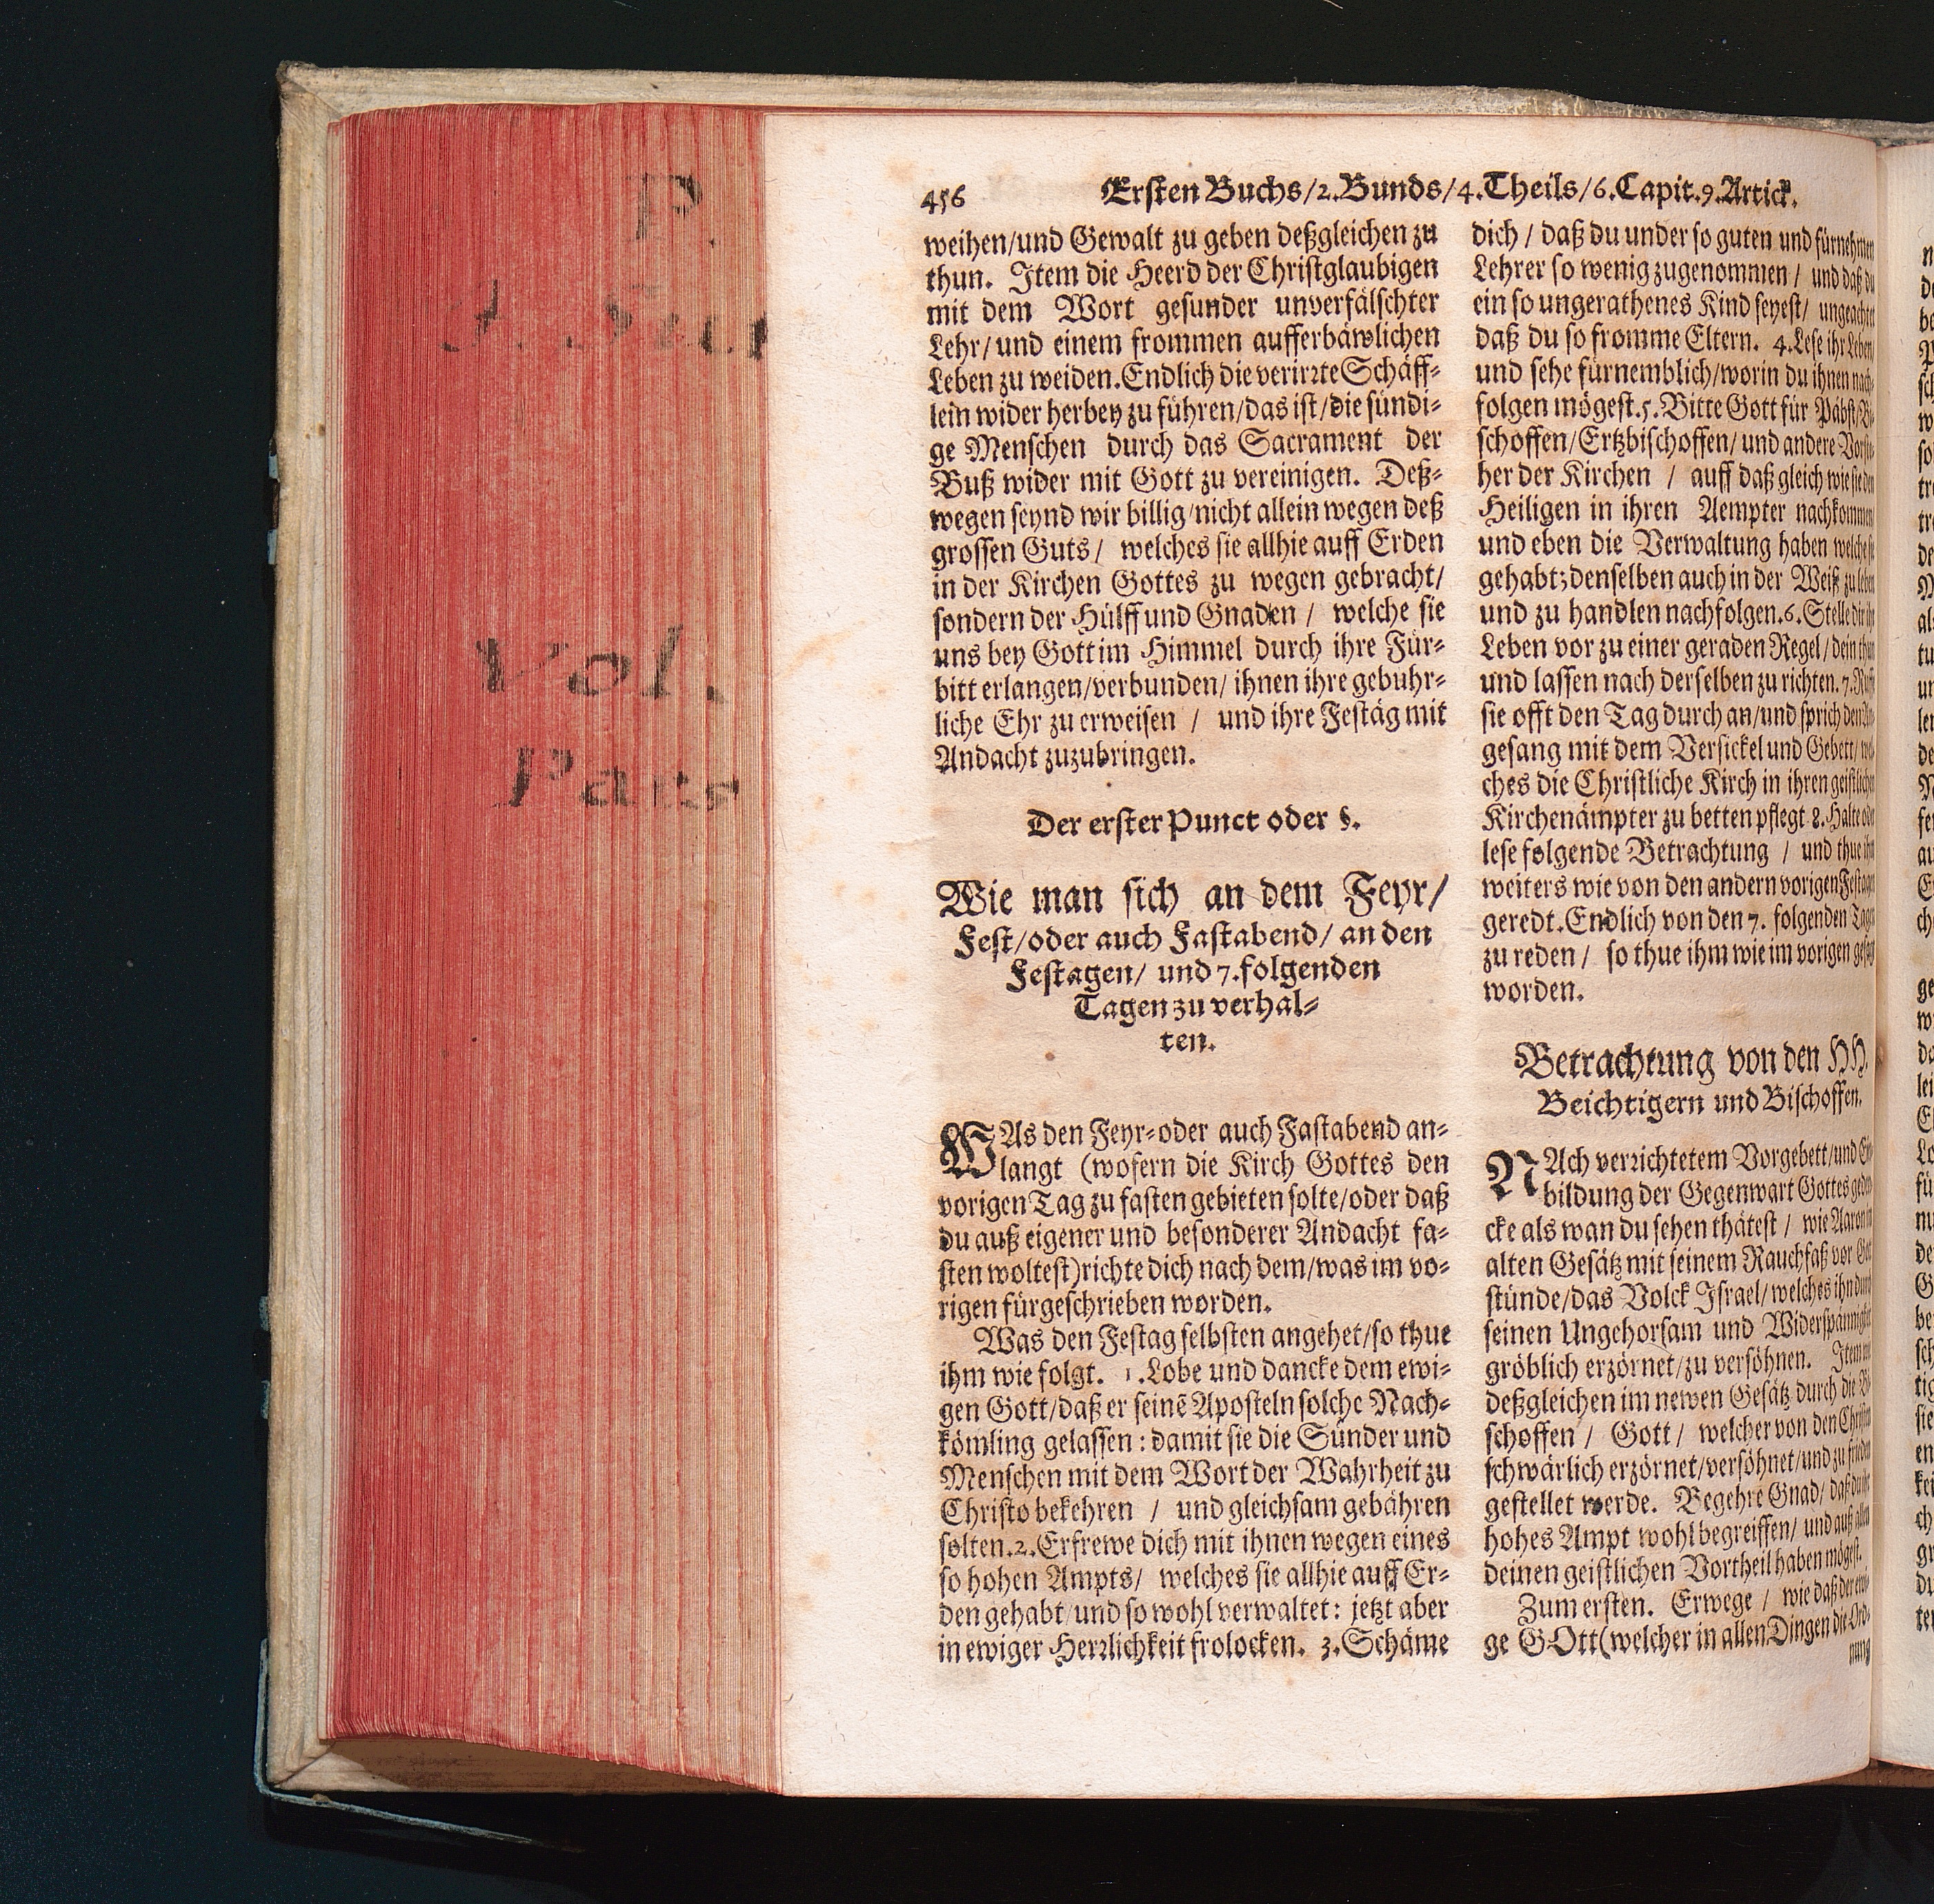 456 Ersten Buchs/2.Bunds/4.Theils/6.Capit.9.Artick.
weihen/und Gewalt zu geben deßgleichen zu
thun. Item die Heerd der Christglaubigen
mit dem Wort gesunder unverfälschter
Lehr/und einem frommen aufferbäwlichen
Leben zu weiden. Endlich die verirrte Schäff-
lein wider herbey zu führen/das ist/die sündi-
ge Menschen durch das Sacrament der
Buß wider mit Gott zu vereinigen. Deß-
wegen seynd wir billig/nicht allein wegen deß
grossen Guts/ welches sie allhie auff Erden
in der Kirchen Gottes zu wegen gebracht/
sondern der Hülff und Gnaden / welche sie
uns bey Gott im Himmel durch ihre Für-
bitt erlangen/verbunden/ ihnen ihre gebuhr-
liche Ehr zu erweisen / und ihre Festäg mit
Andacht zuzubringen.
Der erster Punct oder §.
Wie man sich an dem Feyr/
Fest/oder auch Fastabend/ an den
Festagen/ und 7.folgenden
Tagen zu verhal-
ten.
WAs den Feyr-oder auch Fastabend an-
langt (wofern die Kirch Gottes den
vorigen Tag zu fasten gebieten solte/oder daß
du auß eigener und besonderer Andacht fa-
sten woltest) richte dich nach dem/was im vo-
rigen fürgeschrieben worden.
Was den Festag selbsten angehet/so thue
ihm wie folgt. 1.Lobe und dancke dem ewi-
gen Gott/daß er seinẽ Aposteln solche Nach-
kömling gelassen: damit sie die Sünder und
Menschen mit dem Wort der Wahrheit zu
Christo bekehren / und gleichsam gebähren
solten.2.Erfrewe dich mit ihnen wegen eines
so hohen Ampts/ welches sie allhie auff Er-
den gehabt/und so wohl verwaltet: jetzt aber
in ewiger Herrlichkeit frolocken. 3.Schäme
dich / daß du under so guten und fürnehmen
Lehrer so wenig zugenommen / und daß du
ein so ungerathenes Kind seyest/ ungeachtet
daß du so fromme Eltern. 4.Lese ihr Leben/
und sehe fürnemblich/worin du ihnen nach-
folgen mögest.5.Bitte Gott für Päbst/Bi-
schoffen/Ertzbischoffen/und andere Vorste-
her der Kirchen / auff daß gleich wie sie den
Heiligen in ihren Aempter nachkommen
und eben die Verwaltung haben welche sie
gehabt; denselben auch in der Weiß zu leben
und zu handlen nachfolgen.6.Stelle dir ihr
Leben vor zu einer geraden Regel/dein thun
und lassen nach derselben zu richten.7.Ruff
sie offt den Tag durch an/und sprich den An-
gesang mit dem Versickel und Gebett/ wel-
ches die Christliche Kirch in ihren geistlichen
Kirchenämpter zu betten pflegt 8.Halte oder
lese folgende Betrachtung / und thue ihm
weiters wie von den andern vorigen Festagen
geredt. Endlich von den 7. folgenden Tagen
zu reden / so thue ihm wie im vorigen gesagt
worden.
Betrachtung von den HH.
Beichtigern und Bischoffen.
NAch verrichtetem Vorgebett/und Ein-
bildung der Gegenwart Gottes geden-
cke als wan du sehen thätest / wie Aaron im
alten Gesätz mit seinem Rauchfaß vor Gott
stünde/das Volck Israel/welches ihn durch
seinen Ungehorsam und Widerspännigkeit
gröblich erzörnet/zu versöhnen. Item
deßgleichen im newen Gesätz durch die Bi-
schoffen / Gott / welcher von den Christen
schwärlich erzörnet/versöhnet/und zu frieden
gestellet werde. Begehre Gnad/ daß du ihr
hohes Ampt wohl begreiffen/ und auß allem
deinen geistlichen Vortheil haben mögest.
Zum ersten. Erwege / wie daß der ewi-
ge GOtt (welcher in allen Dingen die Ord-
nung
P.
Vol.
Pars